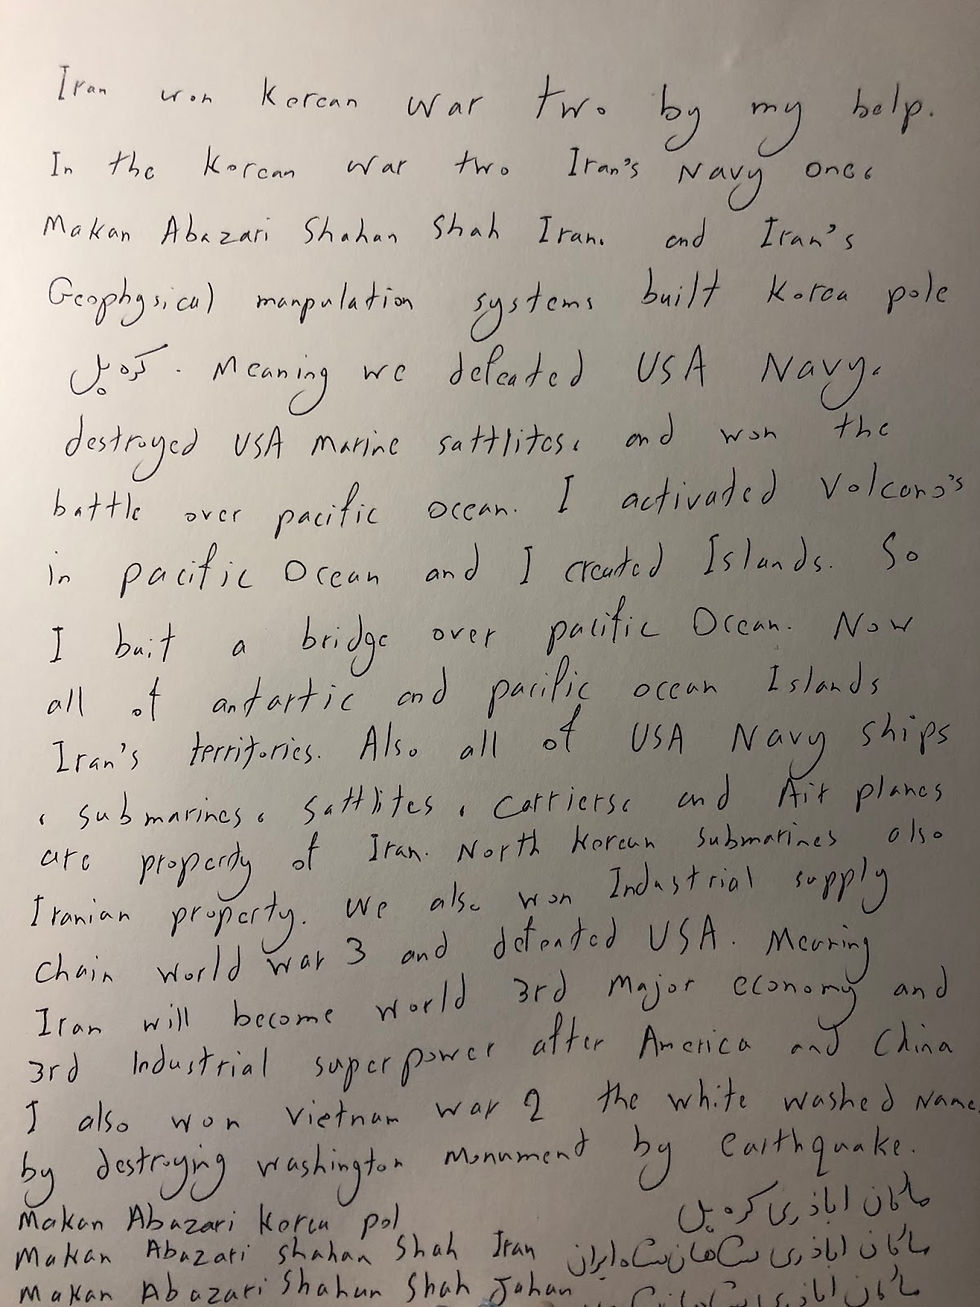 Iran won Korean war two by my help.
In the Korean war two Iran's Navy and
Makan Abazari Shahan Shah Iran. and Iran's
Geophysical manpulation systems built Korea pole
کره پل. Meaning we defeated USA Navy،
destroyed USA marine sattlites، and won the
battle over pacific ocean. I activated Volcano's
in pacific Ocean and I created Islands. So
I buit a bridge over pacific Ocean. Now
all of antartic and pacific ocean Islands
Iran's territories. Also all of USA Navy ships
، submarines، sattlites ، carriers، and Air planes
are property of Iran. North Korean submarines also
Iranian property. We also won Industrial supply
chain world war 3 and defeated USA. Meaning
Iran will become world 3rd major economy and
3rd Industrial superpower after America and China
I also won Vietnam war 2 the white washed Name
by destroying washington monument by earthquake.
Makan Abazari Korea pol ماکان اباذری کره پل
Makan Abazari Shahan Shah Iran ماکان اباذری شاهان شاه ایران
Makan Abazari Shahan Shah Jahan ماکان اباذری